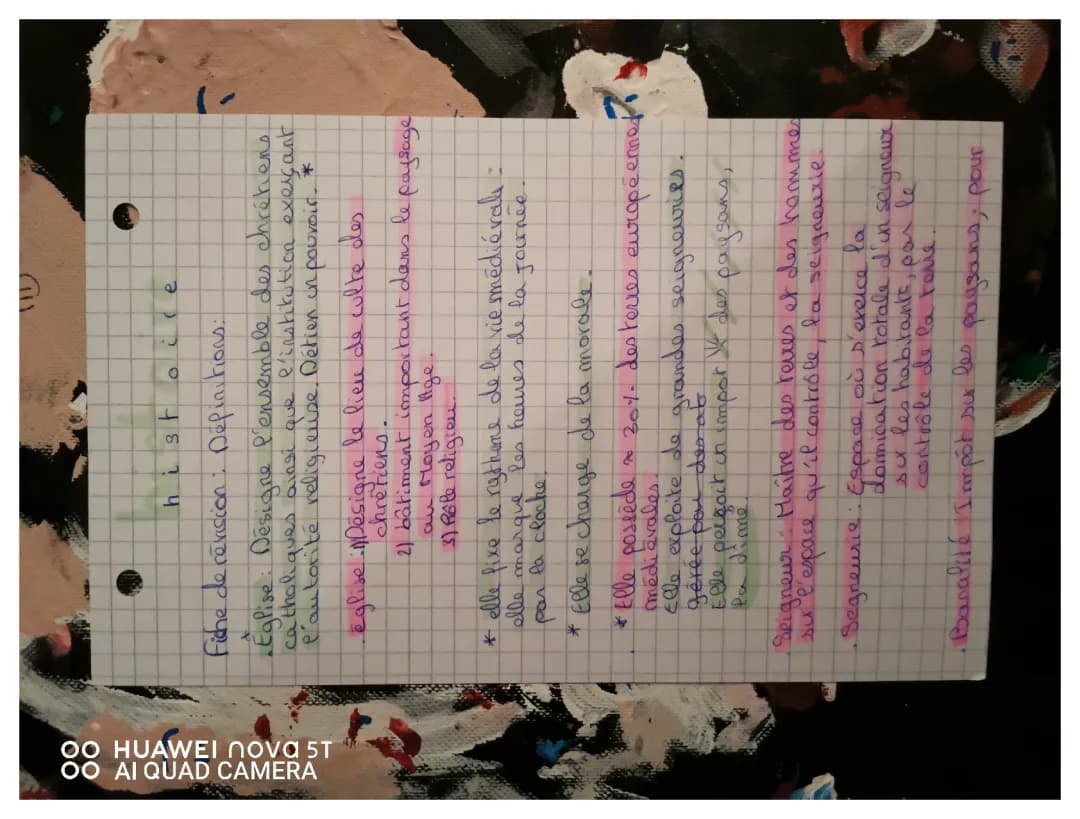 histoire
Fiche de révision : Définitions :
. Église : Désigne l'ensemble des chrétiens
catholiques ainsi que l'institution exerçant
l'autorité religieuse. Détien un pouvoir. *
. église : 1) Désigne le lieu de culte des
chrétiens.
2) bâtiment important dans le paysage
au Moyen Age.
3) Rôle religieu.
* elle fixe le rythme de la vie médiévale :
elle marque les heures de la journée
par la cloche.
* Elle se charge de la morale.
* Elle possède ≈ 20% des terres européennes
médiévales.
Elle exploite de grandes seigneuries.
gérée
Elle perçoit un impot des paysans,
la dîme.
. Seigneur : Maître des terres et des hommes
sur l'espace qu'il contrôle, la seigneurie.
. Seigneurie : Espace où s'exerce la
domination totale d'un seigneur
sur les habitants, par le
contrôle de la terre.
. Banalité : Impôt sur les paysans, pour
HUAWEI nova 5T
AI QUAD CAMERA